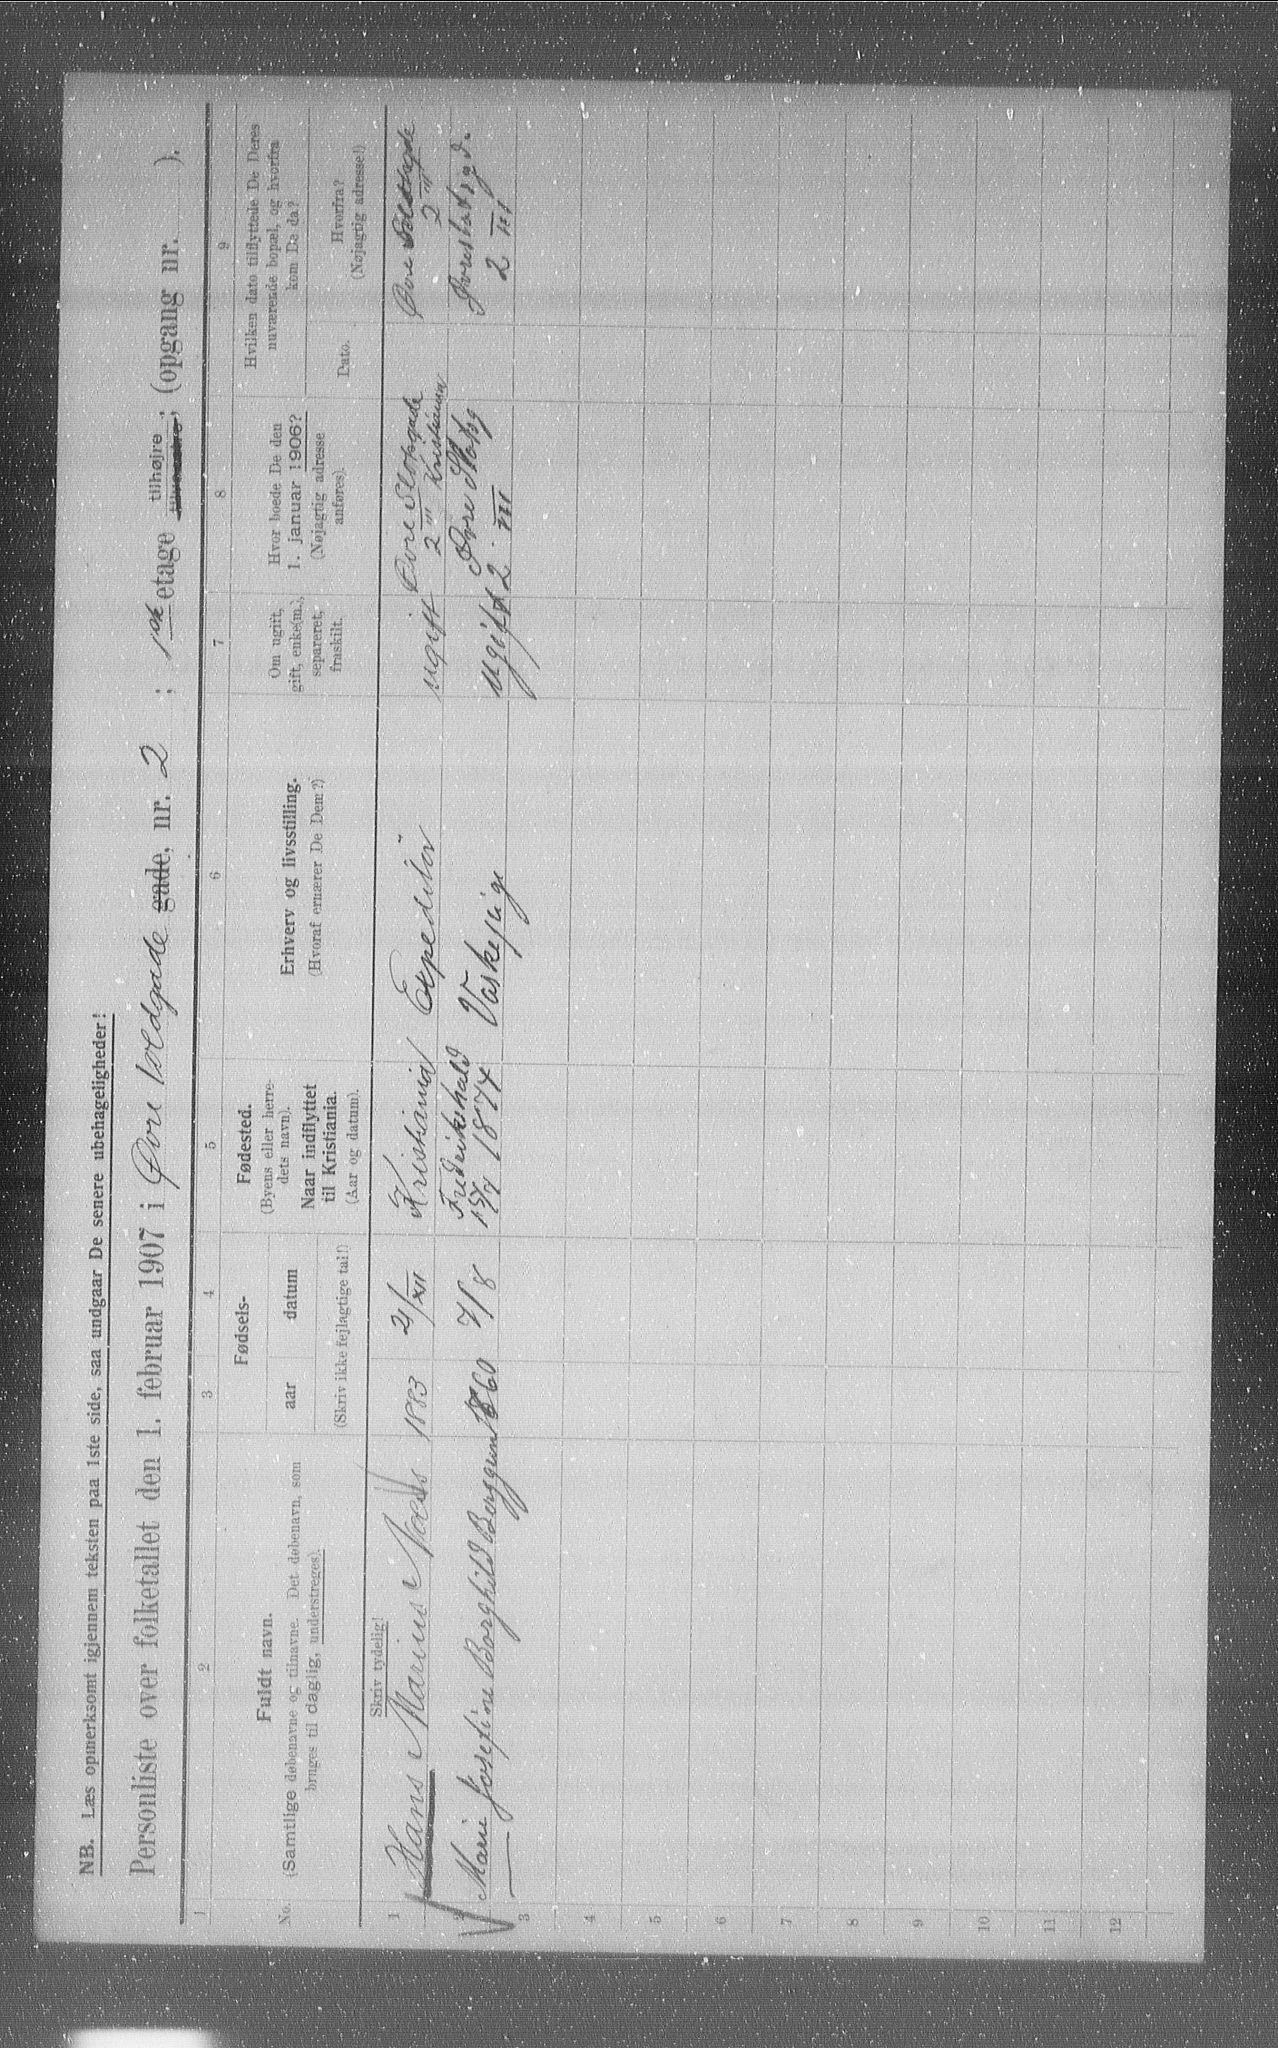 NB. Læs opmerksomt igjennem teksten paa 1ste side, saa undgaar De senere ubehageligheder!
Personliste over folketallet den 1. februar 1907 i Øvre Voldgade gade, nr. 2 ; 1ste etage tilhøjre tilvenstre, (opgang nr. ).
1 2 3 4 5 6 7 8 9
No.
Fuldt navn.
(Samtlige døbenavne og tilnavne. Det døbenavn, som
bruges til daglig, understreges).
Skriv tydelig!
Fødsels-
aar datum
(Skriv ikke fejlagtige tal!)
Fødested.
(Byens eller herre-
dets navn).
Naar indflyttet
til Kristiania.
(Aar og datum).
Erhverv og livsstilling.
(Hvoraf ernærer De Dem?)
Om ugift,
gift, enke(m.),
separeret,
fraskilt.
Hvor boede De den
1. januar 1906?
(Nøjagtig adresse
anføres).
Hvilken dato tilflyttede De Deres
nuværende bopæl, og hvorfra
kom De da?
Dato.
Hvorfra?
(Nøjagtig adresse!)
1 Hans Marius 1883 21/XII Kristiania Expeditør ugift Øvre Slotsgade
2 III Kristiania
Øvre
2 III
2 Marie Josefine Borghild Berggren 1860 7/8 Fredrikshald
1874
Vaskepige ugift Øvre Slotsg
2 III
Øvreslotsgd.
2 III
3
4
5
6
7
8
9
10
11
12